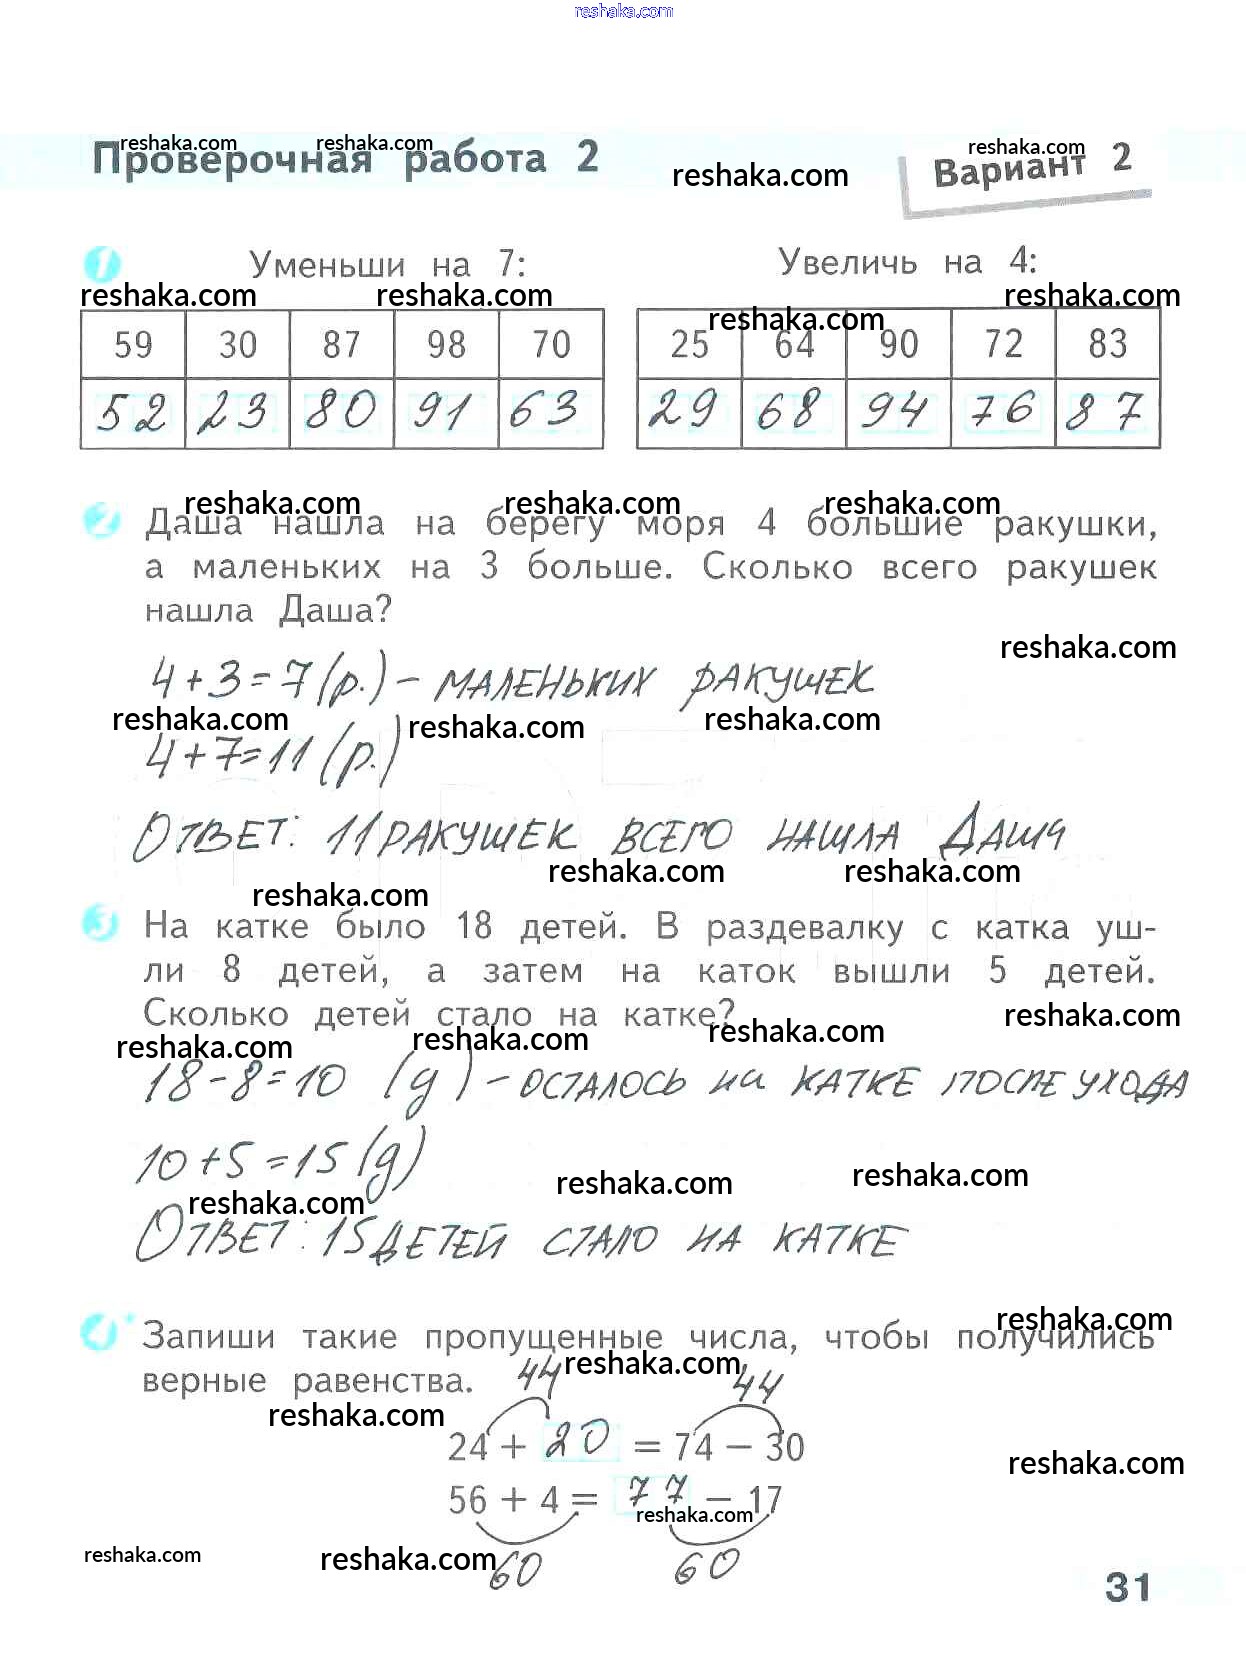 reshaka.com
reshaka.com reshaka.com reshaka.com
Проверочная работа 2 reshaka.com Вариант 2
1 Уменьши на 7: Увеличь на 4:
reshaka.com reshaka.com reshaka.com reshaka.com
59 30 87 98 70 25 64 90 72 83
52 23 80 91 63 29 68 94 76 87
reshaka.com reshaka.com reshaka.com
2 Даша нашла на берегу моря 4 большие ракушки,
а маленьких на 3 больше. Сколько всего ракушек
нашла Даша?
reshaka.com
4+3=7(р.) – МАЛЕНЬКИХ РАКУШЕК
reshaka.com reshaka.com reshaka.com
4+7=11(р.)
ОТВЕТ: 11 РАКУШЕК ВСЕГО НАШЛА ДАША
reshaka.com reshaka.com reshaka.com
3 На катке было 18 детей. В раздевалку с катка уш-
ли 8 детей, а затем на каток вышли 5 детей.
Сколько детей стало на катке?
reshaka.com reshaka.com reshaka.com reshaka.com
18-8=10 (д) – ОСТАЛОСЬ НА КАТКЕ ПОСЛЕ УХОДА
10+5=15(д)
reshaka.com reshaka.com reshaka.com
ОТВЕТ: 15 ДЕТЕЙ СТАЛО НА КАТКЕ
reshaka.com
4* Запиши такие пропущенные числа, чтобы получились
верные равенства. 44 reshaka.com 44
reshaka.com
24 + 20 = 74 – 30
reshaka.com
56 + 4 = 77 – 17
reshaka.com
reshaka.com reshaka.com
60 60
31